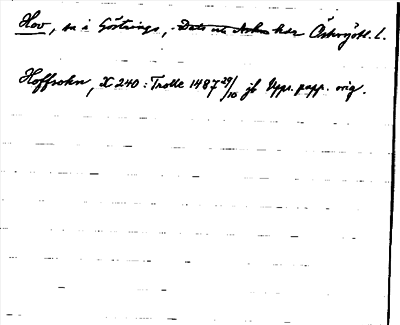 Hov, sn i Göstrings, hdr Östergötl. l.
Hoffsokn, X 240 : Trolle 1487 29/10 jb Upps. papp. orig.